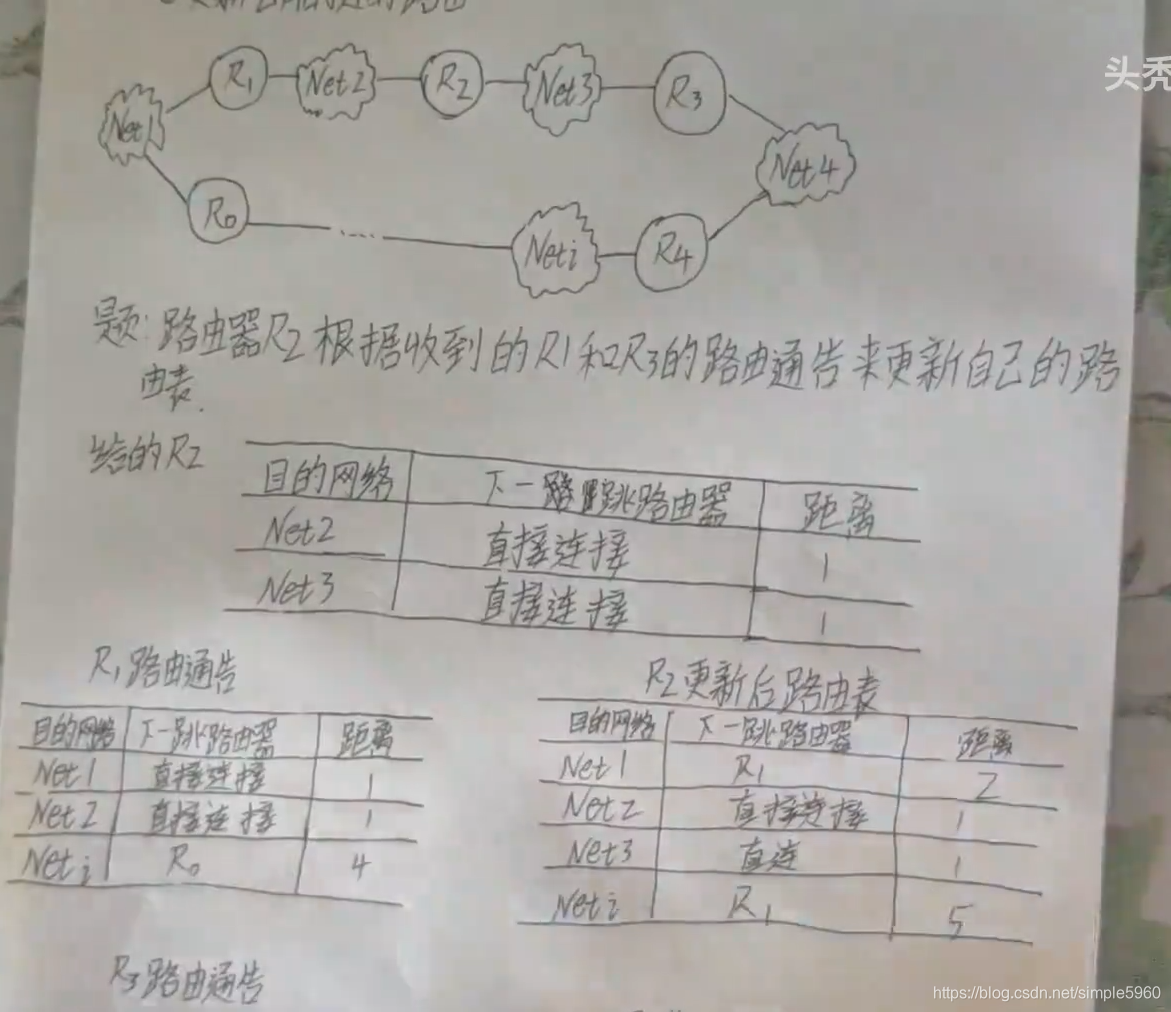 头秃
R1 Net2 R2 Net3 R3
Net1
Net4
R0 ..... Neti R4
题: 路由器R2根据收到的R1和R3的路由通告来更新自己的路
由表.
给的R2
目的网络 下一跳路由器 距离
Net2 直接连接 1
Net3 直接连接 1
R1路由通告
目的网络 下一跳路由器 距离
Net1 直接连接 1
Net2 直接连接 1
Neti R0 4
R2更新后路由表
目的网络 下一跳路由器 距离
Net1 R1 2
Net2 直接连接 1
Net3 直连 1
Neti R1 5
R3路由通告
https://blog.csdn.net/simple5960